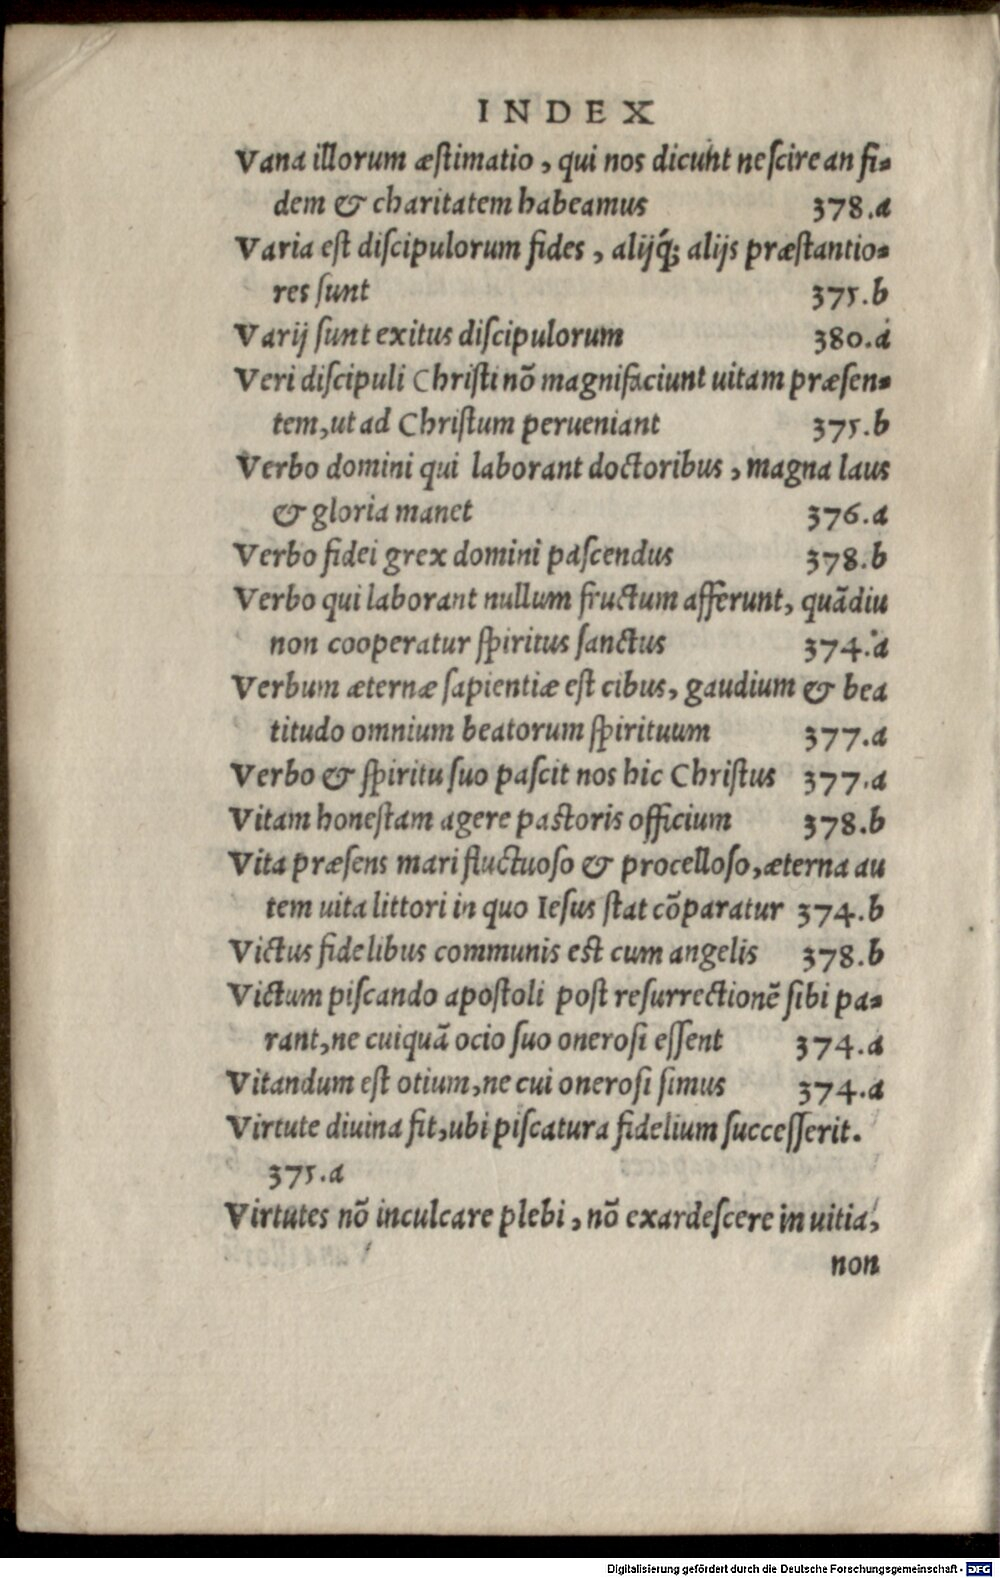 INDEX
Vana illorum æstimatio, qui nos dicunt nescire an fi-
dem & charitatem habeamus 378.a
Varia est discipulorum fides, alijq́; alijs præstantio-
res sunt 375.b
Varij sunt exitus discipulorum 380.a
Veri discipuli Christi nõ magnifaciunt uitam præsen-
tem, ut ad Christum perueniant 375.b
Verbo domini qui laborant doctoribus, magna laus
& gloria manet 376.a
Verbo fidei grex domini pascendus 378.b
Verbo qui laborant nullum fructum afferunt, quãdiu
non cooperatur spiritus sanctus 374.a
Verbum æternæ sapientiæ est cibus, gaudium & bea
titudo omnium beatorum spirituum 377.a
Verbo & spiritu suo pascit nos hic Christus 377.a
Vitam honestam agere pastoris officium 378.b
Vita præsens mari fluctuoso & procelloso, æterna au
tem uita littori in quo Iesus stat cõparatur 374.b
Victus fidelibus communis est cum angelis 378.b
Victum piscando apostoli post resurrectionẽ sibi pa-
rant, ne cuiquã ocio suo onerosi essent 374.a
Vitandum est otium, ne cui onerosi simus 374.a
Virtute diuina fit, ubi piscatura fidelium successerit.
375.a
Virtutes nõ inculcare plebi, nõ exardescere in uitia,
non
Digitalisierung gefördert durch die Deutsche Forschungsgemeinschaft - DFG